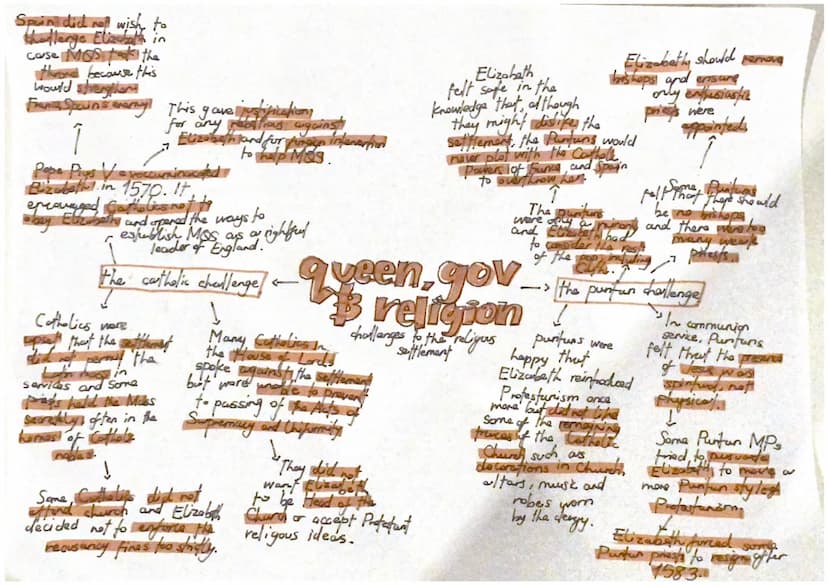 Spain did not wish to
challenge Elizabeth in
case MQS took the
throne because this
would strengthen
France, Spain's enemy
This gave justification
for any rebellions against
Elizabeth and for foreign intervention
to help MQS.
Pope Pius V excommunicated
Elizabeth in 1570. It
encouraged Catholics not to
obey Elizabeth and opened the ways to
establish MQS as a rightful
leader of England.
the catholic challenge
Catholics were
upset that the settlement
did not permit the
Latin Mass in
services and some
priests held the Mass
secretly, often in the
homes of Catholic
nobles.
Some Catholics did not
attend church and Elizabeth
decided not to enforce the
recusancy fines too strictly.
Many Catholics in
the House of Lords
spoke against the settlement
but were unable to prevent
to passing of the Acts of
Supremacy and Uniformity
They did not
want Elizabeth
to be Head of the
Church or accept Protestant
religious ideas.
queen, gov
& religion
challenges to the religious
settlement
the puritan challenge
Elizabeth
felt safe in the
knowledge that although
they might dislike the
settlement, the Puritans would
never plot with the Catholic
powers of France and Spain
to overthrow her.
The puritans
were only a minority
and Elizabeth had
to consider the rest
of the pop, including
Caths.
Elizabeth should remove
bishops and ensure
only enthusiastic
priests were
appointed.
Some Puritans
felt that there should
be no bishops
and there were too
many weak
priests.
puritans were
happy that
Elizabeth reintroduced
Protestantism once
more but did not like
some of the remaining
traces of the Catholic
Church such as
decorations in Church,
altars, music and
robes worn
by the clergy.
In communion
service, Puritans
felt that the presence
of Jesus was
spiritual, not
physical.
Some Puritan MPs
tried to persuade
Elizabeth to move a
more Puritan style of
Protestantism.
Elizabeth forced some
Puritan priests to resign after
1583.